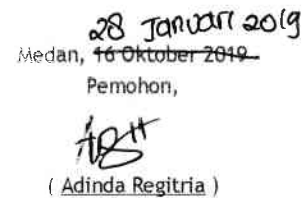 28 Januari 2019
Medan, 16 Oktober 2019
Pemohon,
( Adinda Regitria )